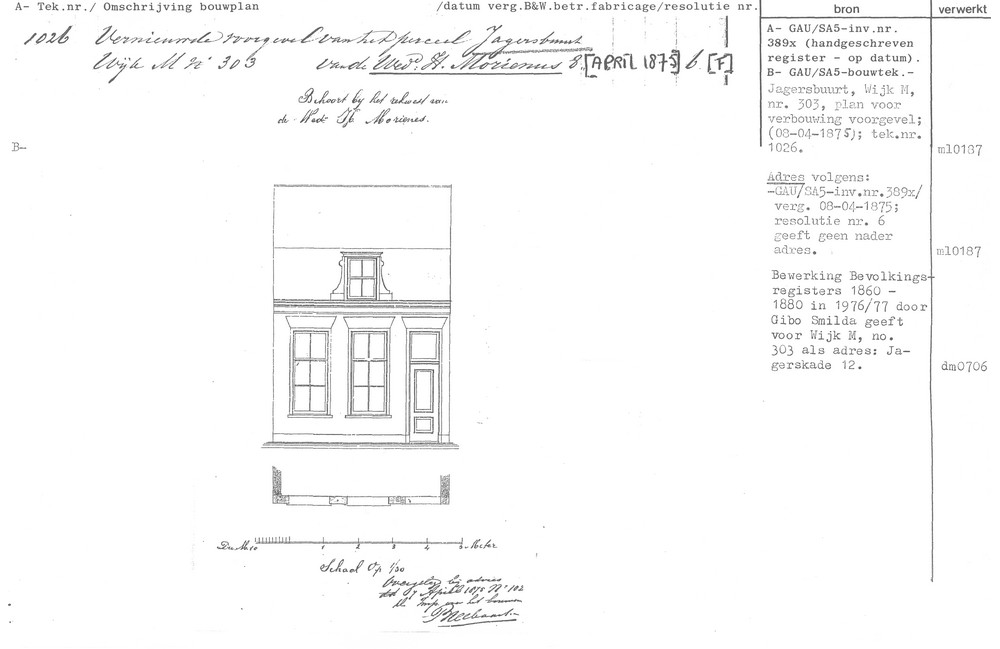 A- Tek.nr./ Omschrijving bouwplan /datum verg.B&W.betr.fabricage/resolutie nr.
bron
verwerkt
1026 Vernieuwde voorgevel van het perceel Jagersbuurt
Wijk M No 303 van de Wede. H. Morienus 8 [APRIL 1875] 6 [F]
Behoort by het rekwest van
de Wede H Morienes.
B-
A- GAU/SA5-inv.nr.
389x (handgeschreven
register - op datum).
B- GAU/SA5-bouwtek.-
Jagersbuurt, Wijk M,
nr. 303, plan voor
verbouwing voorgevel;
(08-04-1875); tek.nr.
1026.
ml0187
Adres volgens:
-GAU/SA5-inv.nr.389x/
verg. 08-04-1875;
resolutie nr. 6
geeft geen nader
adres.
ml0187
Bewerking Bevolkings-
registers 1860 -
1880 in 1976/77 door
Gibo Smilda geeft
voor Wijk M, no.
303 als adres: Ja-
gerskade 12.
dm0706
De M. 10 1 2 3 4 5 Meter
Schaal Op 1/50
Overgelegd bij adres
dd 7 April 1875 No 102